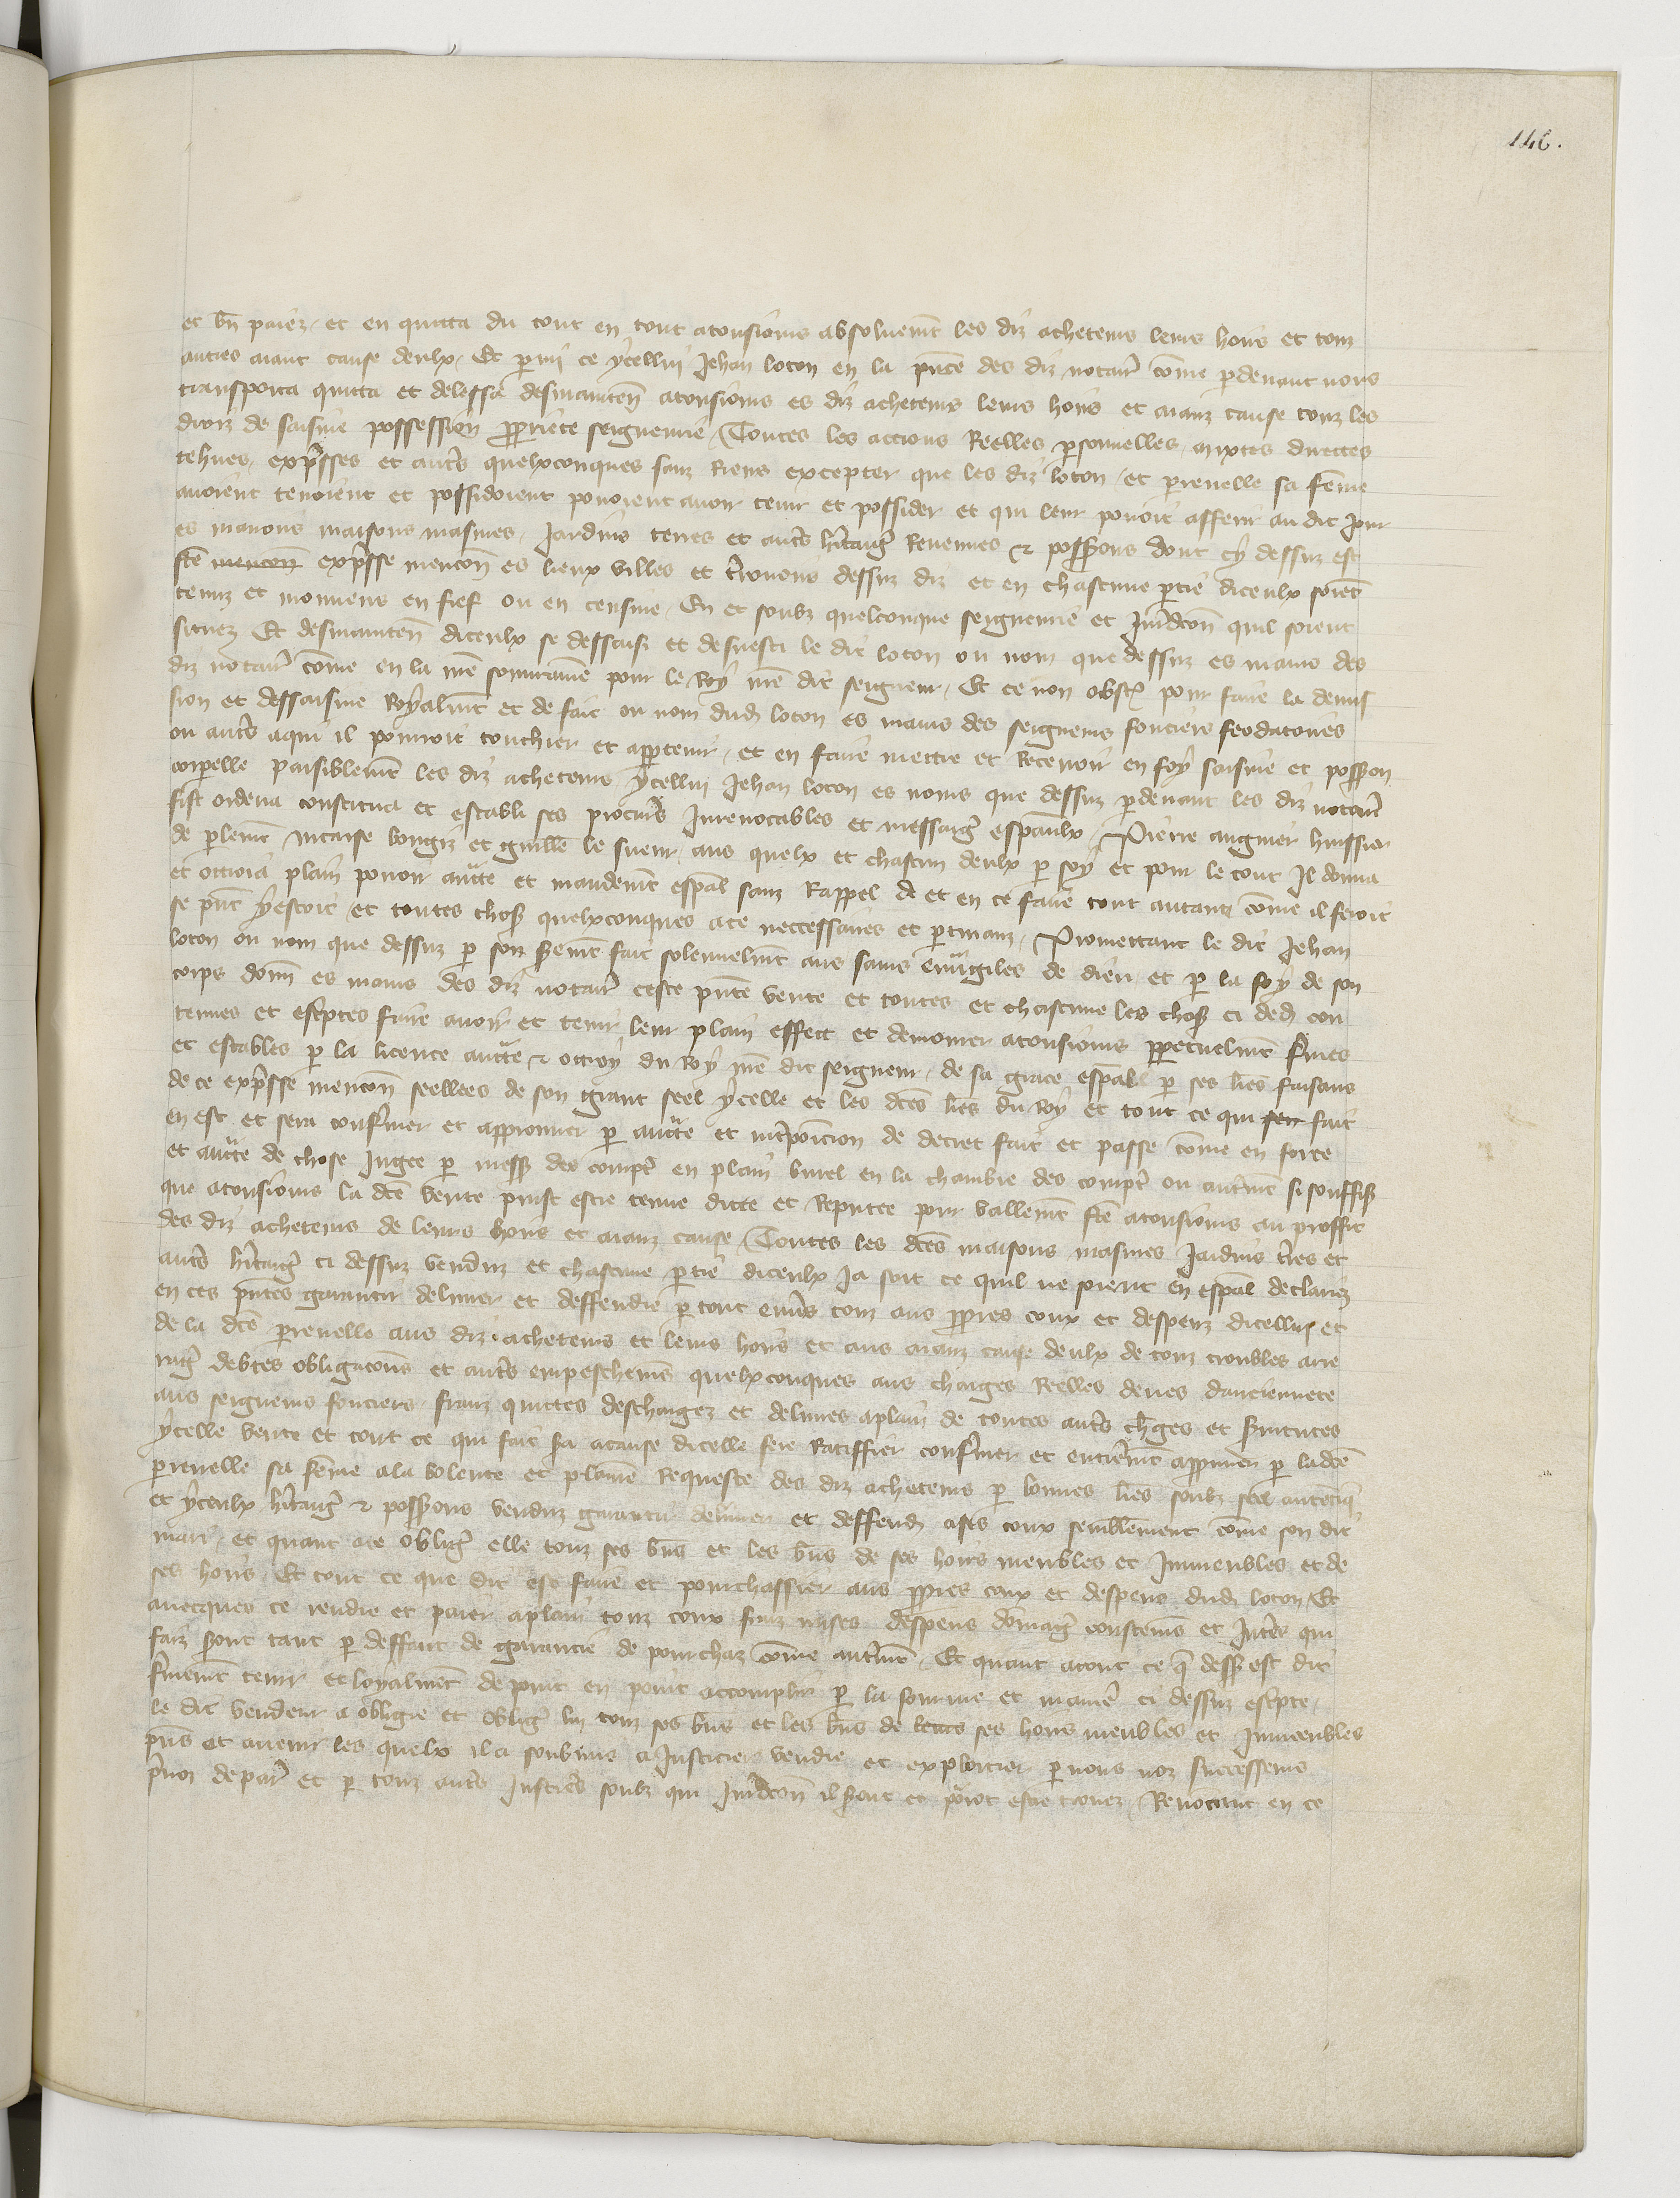 146.
et bn̄ paiez et en quitta du tout en tout atousiours absoluemt̄ les diz acheteurs leurs hoirs et touz
autres aiant cause deulx Et parmi ce ycellui Jehan loton en la pn̄ce des diz notair̄ cōme pardeuant nous
transporta quitta et delessa desmaintenn̄ atousiours es diz acheteurs leurs hoirs et aianz cause touz les
droiz de saisine possession pp̄riete seigneurie Toutes les actions Reelles personnelles mixtes directes
tehues expr̄sses et autr̄s quelxconques sanz Riens excepter que les diz loton et perenelle sa fēme
auoient tenoient et possidoient pouoient auoir tenir et possider et qui leur pouoit afferir au dit jour
es manoirs maisons masures Jardins terres et autr̄s hr̄itaiḡ Reuenues & poss̄ons dont cy dessuz est
fc̄e mencon expr̄sse mencōn es lieux villes et tr̄rouoirs dessuz diz et en chascune partie diceulx soiēt
tenuz et mouuens en fief ou en censiue En et soubz quelconque seigneurie et Jur̄idcōn quil soient
situez Et desmaintenn̄ diceulx se dessaisi et desuesti le dit loton ou nom que dessuz es mains des
diz notair̄ cōme en la nr̄e souueraine pour le Roy nr̄e dit seigneur Et ce non obst̄ pour faire la demis
sion et dessaisine Royalmt̄ et de fait ou nom dud loton es mains des seigneurs fonciers feodatoires
ou autr̄s aqui il pourroit touchier et appartenir et en faire mettre et Receuoir en foy saisine et poss̄on
corporelle paisiblemt̄ les diz acheteurs ycellui Jehan loton es noms que dessuz pardeuant les diz notair̄
fist ordena constitua et establi ses procur̄s Jrreuocables et messaiḡ esp̄aulx Pierre augnier huissier
de parlemt̄ nicaise bougiz et guille le sueur aus quelx et chascun deulx par soy et pour le tout Il donna
et ottroia plain pouoir autte et mandemt̄ esp̄al sanz Rappel de et en ce faire tout autant cōme il feroit
se pn̄t yestoit et toutes chos̄ quelxconques ace neccessaires et partinanz Promettant le dit Jehan
loton ou nom que dessuz par son seremt̄ fait solennelmt̄ aus sains euu̅giles de dieu et par la foy de son
corps donn̄ es mains des diz notair̄ ceste pn̄te vente et toutes et chascune les chos̄ ci ded̄ con
tenues et escr̄ptes faire auoir et tenir leur plain effect et demourer atousiours pp̄etuelmt̄ f̄mes
et estables par la licence autte & ottroy du Roy nr̄e dit seigneur de sa grace esp̄al par ses lr̄es faisans
de ce expr̄sse mencōn seellees de son grant seel ycelle et les dc̄es lr̄es du Roy et tout ce qui ser fait
en est et sera confermer et approuuer par autte et int̄posicion de decret fait et passe cōme en force
et autte de chose Jugee par mess̄ des compt̄ en plain burel en la chambre des compt̄ ou autrmt̄ si souffis̄
que atousiours la dc̄e vente puist estre tenue dicte et Reputee pour vallemt̄ fc̄e atousiours au proffit
des diz acheteurs de leurs hoirs et aianz cause Toutes les dc̄es maisons masures Jardins tr̄es et
autr̄s hr̄itaiḡ ci dessuz venduz et chascune partie diceulx Ja soit ce quil ne soient en esp̄al declairez
en ces pn̄tes garantir deliurer et deffendre partout enuers touz aus pp̄res coux et despenz dicellui et
de la dc̄e perenelle aus diz acheteurs et leurs hoirs et aus aianz cause deulx de touz troubles arre
raiḡ debtes obligacōns et autr̄s empeschem̄s quelxconques aus charges Reelles deues danciennete
aus seigneurs fonciers franz quittes deschargez et deliures aplain de toutes autr̄s ch̄ges et seruitutes
ycelle vente et tout ce qui fait sera acause dicelle fere Ratiffier confermer et entier̄mt̄ appuuer par ladc̄e
perenelle sa fēme ala volente et plainē Requeste des diz acheteurs par bonnes lr̄es soubz seel autentiq
et yceulx hr̄itaiḡ & poss̄ons venduz garantir deliurer et deffend̄ ases coux semblement cōme son dit
mari et quant ace obligr̄ elle touz ses bn̄s et les bn̄s de ses hoirs meubles et Jmmeubles et de
ses hoirs Et tout ce que dit est faire et pourchassier aus pp̄res coux et despens dud̄ loton Et
auecques ce rendre et paier aplain touz coux fraiz mises despens domaiḡ coustem̄s et Jnter̄s qui
faiz seront tant par deffaut de garantie de pourchaz cōme autrmt̄ Et quant atout ce q̄ dess̄ est dit
f̄mement tenir et loyalment de point en point accomplir par la fourme et manier̄ ci dessuz escr̄pte
le dit vendeur a obligie et obligr̄ lui touz ses bn̄s et les bn̄s de leurs ses hoirs meubles et Jmmeubles
pn̄s et auenir les quelx il a soubmis a Justicier vendre et exploitier par nous noz successeurs
pr̄uoz de par̄ et par touz autr̄s Justic̄s soubz qui Jur̄idcōn il seront et porrōt estre trouez Renoncant en ce